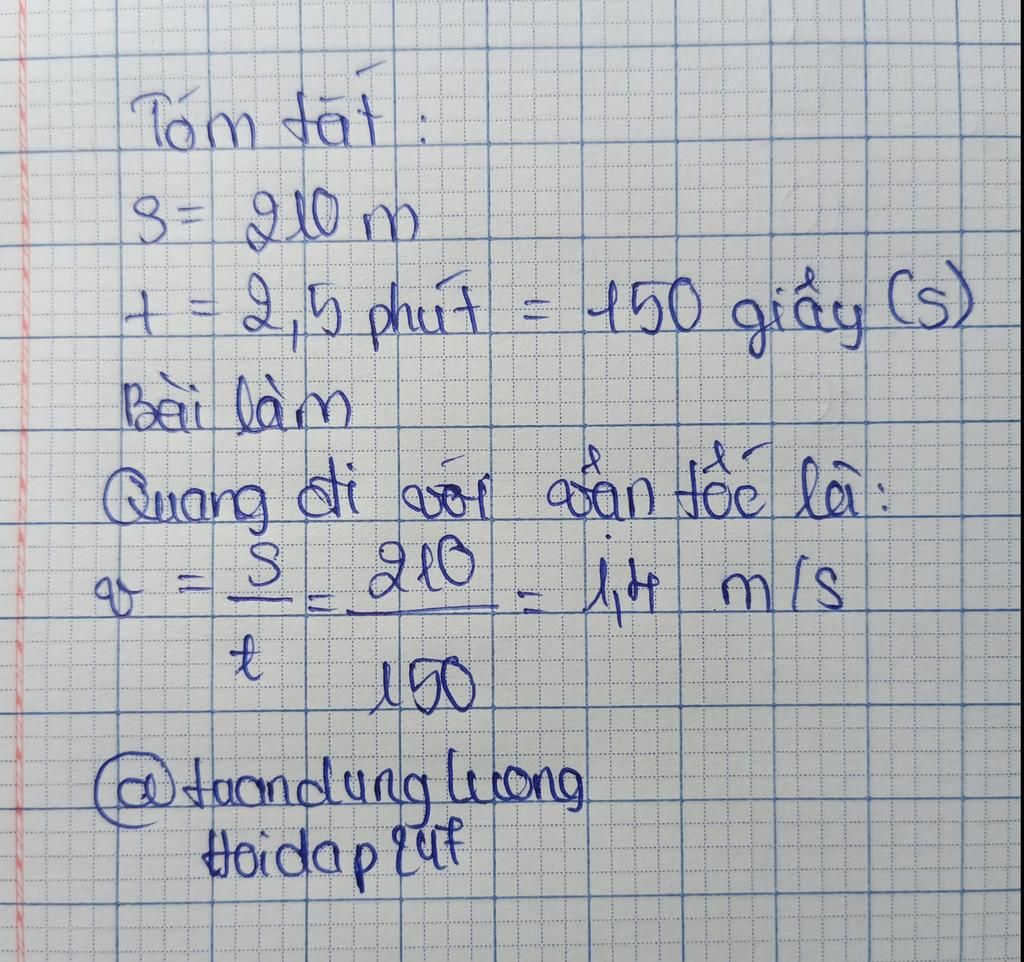 Tóm tắt :
S = 210 m
t = 2,5 phút = 150 giây (s)
Bài làm
Quang đi với vận tốc là:
v = S/t = 210/150 = 1,4 m/s
@taandungluong
Hoidap247